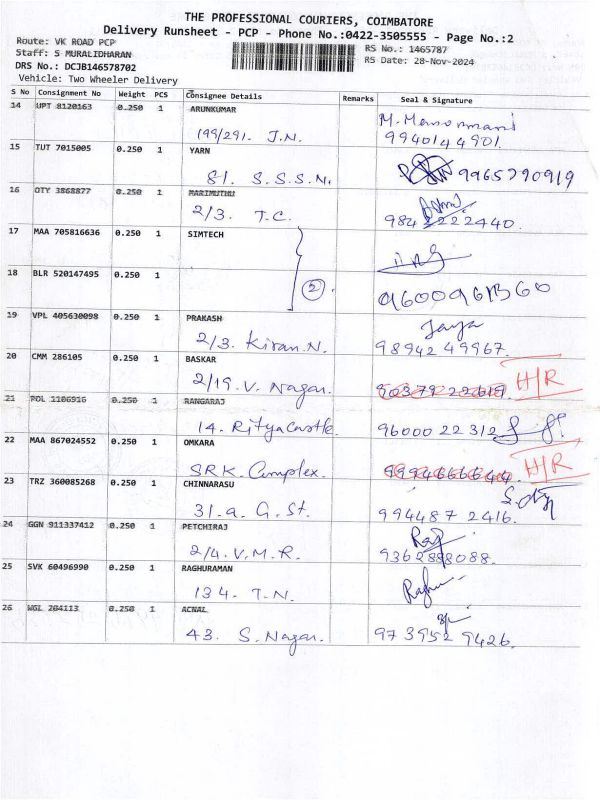 THE PROFESSIONAL COURIERS, COIMBATORE
Delivery Runsheet - PCP - Phone No.:0422-3505555 - Page No.:2
Route: VK ROAD PCP
Staff: S MURALIDHARAN
DRS No.: DCJB146578702
Vehicle: Two Wheeler Delivery
RS No.: 1465787
RS Date: 28-Nov-2024
S No Consignment No Weight PCS Consignee Details Remarks Seal & Signature
14 UPT 8120163 0.250 1 ARUNKUMAR
199/291. J.N. 9940144901.
15 TUT 7015005 0.250 1 YARN
81. S.S.S.N. 9965790919
16 OTY 3868877 0.250 1 MARIMUTHU
2/3. T.C. 9842222440.
17 MAA 705816636 0.250 1 SIMTECH
18 BLR 520147495 0.250 1 2 9600961360
19 VPL 405630098 0.250 1 PRAKASH Jaya
2/3. Kiran.N. 9894249967.
20 CMM 286105 0.250 1 BASKAR
2/19. V. Nagar. H/R
21 POL 1106916 0.250 1 RANGARAJ
14. Rityacastle. 9600022312
22 MAA 867024552 0.250 1 OMKARA
SRK Complex. 9994666644. H/R
23 TRZ 360085268 0.250 1 CHINNARASU
31. a. G. St. 9944872416.
24 GGN 911337412 0.250 1 PETCHIRAJ Raj
2/4. V.M.R. 9362888088.
25 SVK 60496990 0.250 1 RAGHURAMAN
134. T.N. Raghu
26 WGL 204113 0.250 1 ACNAL
43. S. Nagar. 9739529426.